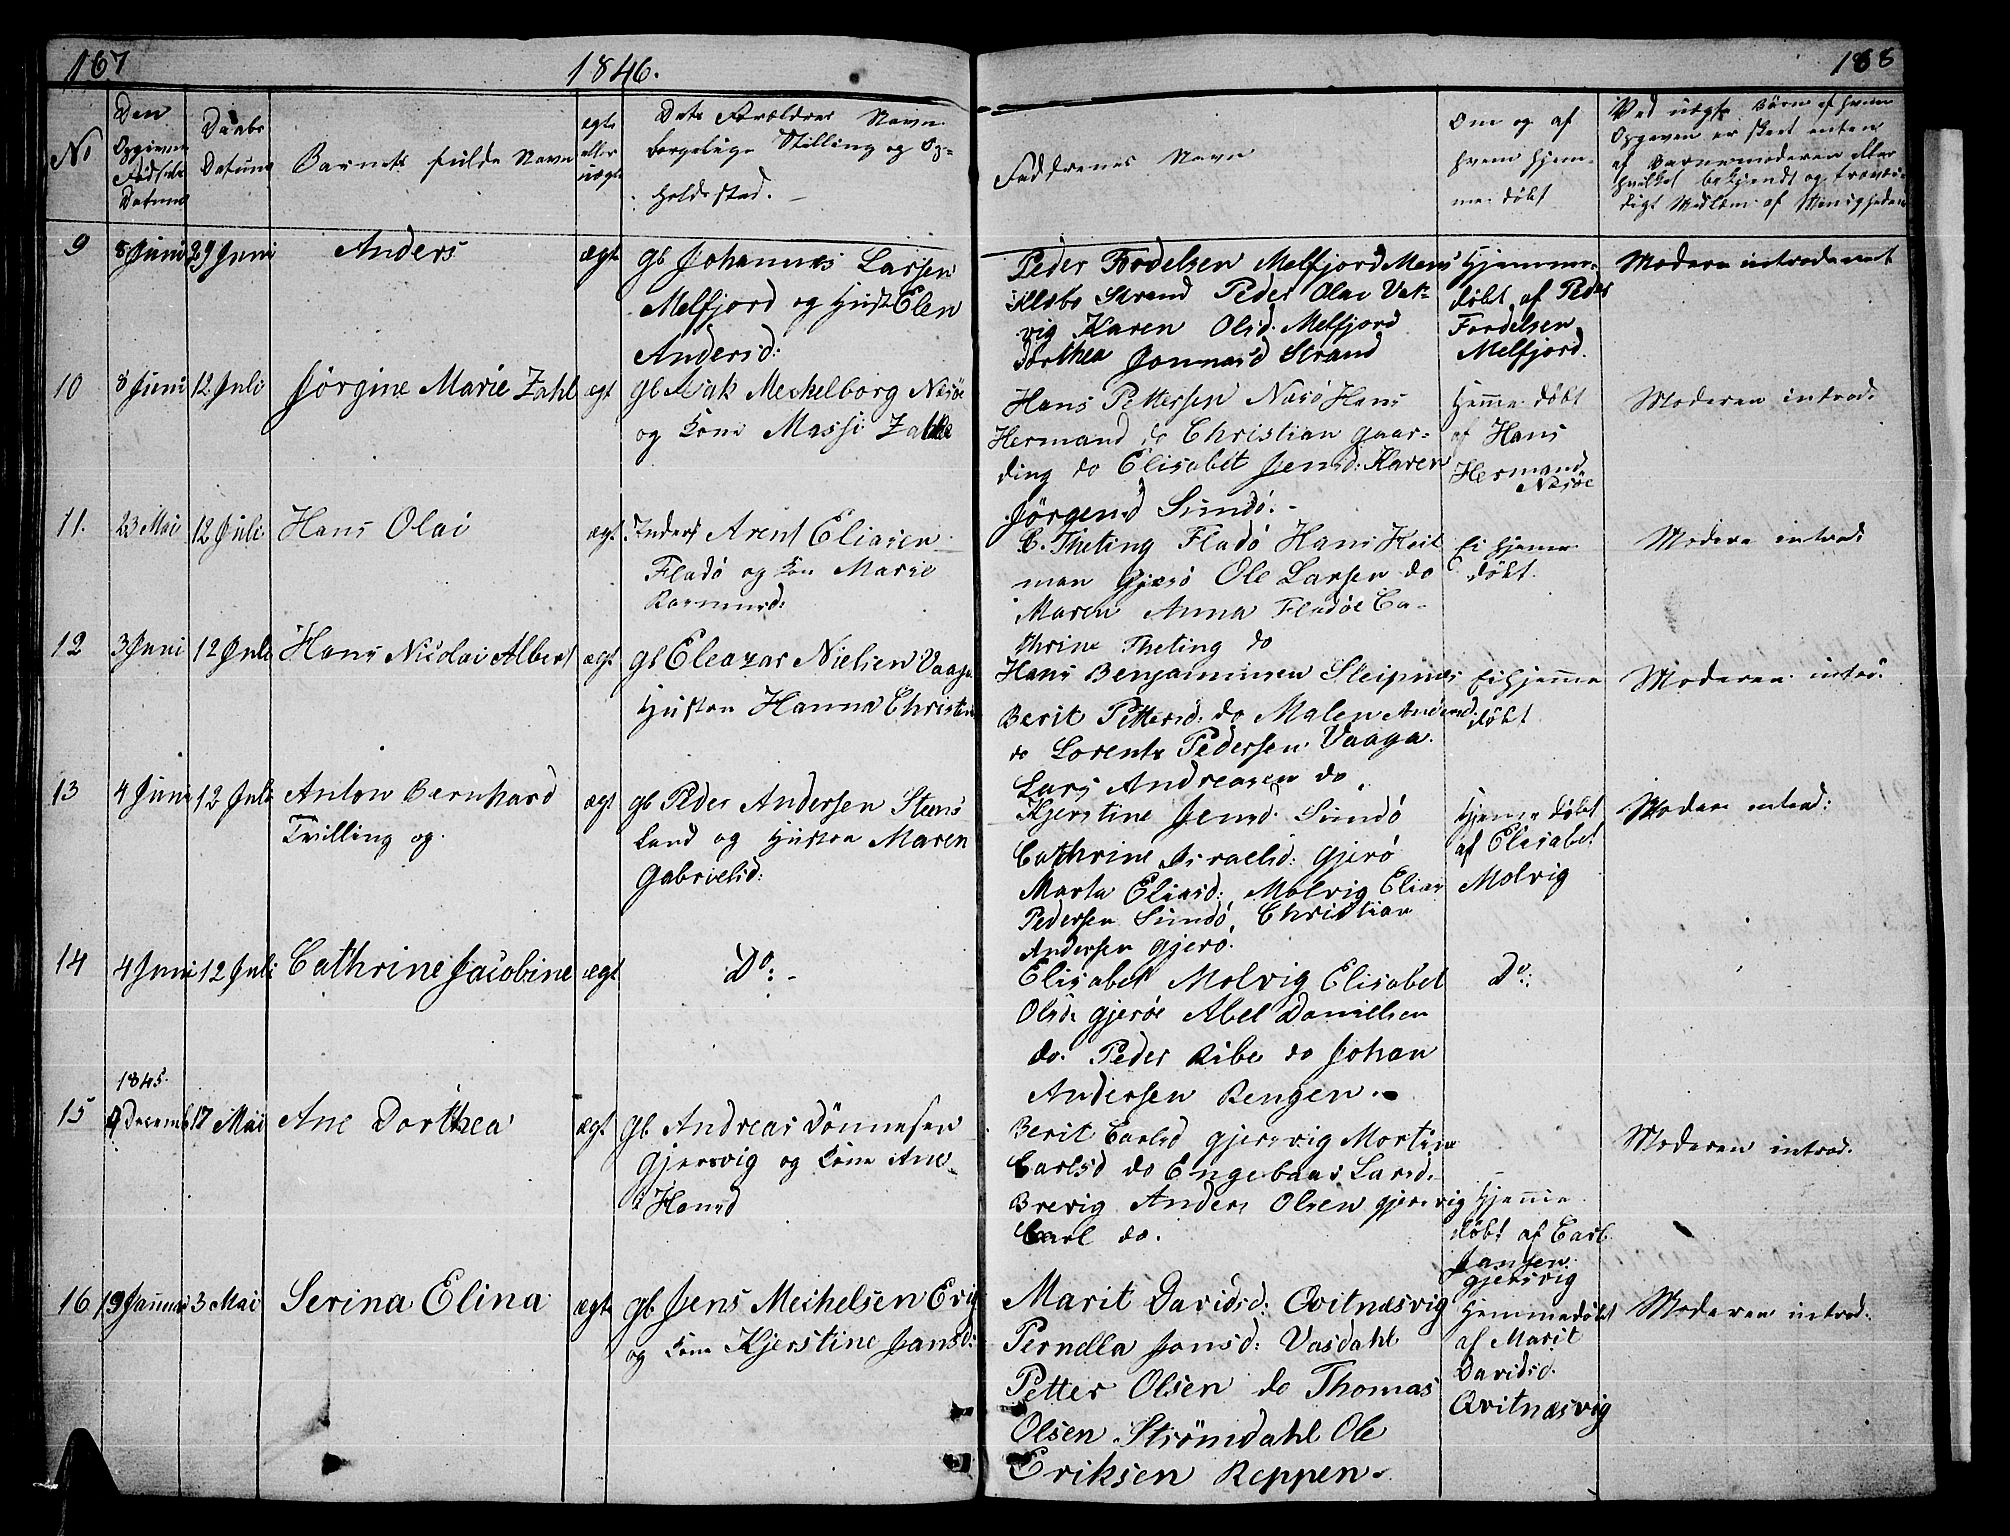 167
1846.
168
No
Den Opgivne Fødsels Datum
Daabs Datum
Barnets fulde Navn
ægte eller uægte
Dets Forældres Navn
borgelige Stilling og Op-
holdssted.
Faddrenes Navn
Om og af
hvem hjem-
me døbt
Ved uægte Børn af hvem
Opgaven er skeet enten
af Barnemoderen eller
hvilket bekjendt og trovær-
digt Medlem af Menigheden
9 8 Juni 29 Juni Anders ægt gb Johannes Larsen
Melfjord og Hust Elen
Andersd:
Peder Fordelsen Melfjord Mons
Strand Peder Olai
vig Karen Olsd. Melfjord
Dorthea Jonnasd Strand
Hjemme-
døbt af Peder
Fordelsen
Melfjord.
Modern introduceret
10 8 Juni 12 Juli Jørgine Marie Zahl ægt gb Isak Meckelborg Næsøe
og Kone Massi Zahl
Hans Pettersen Næsø Hans
Hermand do Christian Gaar-
ding do Elisabet Jensd: Karen
Jörgensd Sundö.-
Hjemme døbt
af Hans
Hermand
Næsøe
Moderen introd:
11. 23 Mai 12 Juli. Hans Olai ægt Inderst Arent Eliasen
Fladö og Kon Marie
Rasmusd:
C. Theting Fladö Hans Heit
man Gjæsö Ole Larsen do
Maren Anna Fladöe Ca-
thrine Theting do
Ei hjemme
døbt.
Modere introd:
12 3 Juni 12 Juli Hans Nicolai Albert ægt gb Eleazar Nielsen Vaaga
Hustru Hanna Christin
Hans Benjaminsen Sleipnes
Berit Pettersd: do Malen Andersd.
do Lorents Pedersen Vaaga.
Lars Andreasen do
Ei hjemme
døbt.
Moderen introd:
13 4 Juni 12 Juli Anton Bernhard
Tvilling og.
ægt gb Peder Andersen Steens
Land og Hustru Maren
Gabrielsd:
Kjerstine Jensd. Sundö
Cathrine Israelsd: Gjerö
Marta Eliasd: Molvig Elias
Pedersen Sundö, Christian
Andersen Gjerö.
Hjemme døbt
af Elisabet
Molvig
Modern introd:
14 4 Juni 12 Juli Cathrine Jacobine ægt Do:-
Elisabet Molvig Elisabet
Olsd: Gjeröe Abel Danielsen
do. Peder Ribe do Johan
Andersen Rengen.
Do:
1845.
15 9 Decemb 17 Mai Ane Dorthea ægt gb. Andreas Dönnesen
Gjersvig og Kone Ane
Hansd
Berit Carlsd Gjersvig Mortine
Carlsd do Engebaar Larsd.
Brevig Anders Olsen Gjersvig
Carl do.
Hjemme
døbt af Carl
Jansen
Gjersvig
Moderen introd.
16 19 Januar 3 Mai Serina Elina ægte gb. Jens Mechelsen Evig
og Kone Kjerstine Jansd:
Marit Davidsd: Qvitnæsvig
Pernella Jonsd: Vasdahl
Petter Olsen do Thomas
Olsen Strömdahl Ole
Eriksen Reppen.
Hjemmedøbt
af Marit
Davidsd.
Qvitnæsvig
Moderen introd.